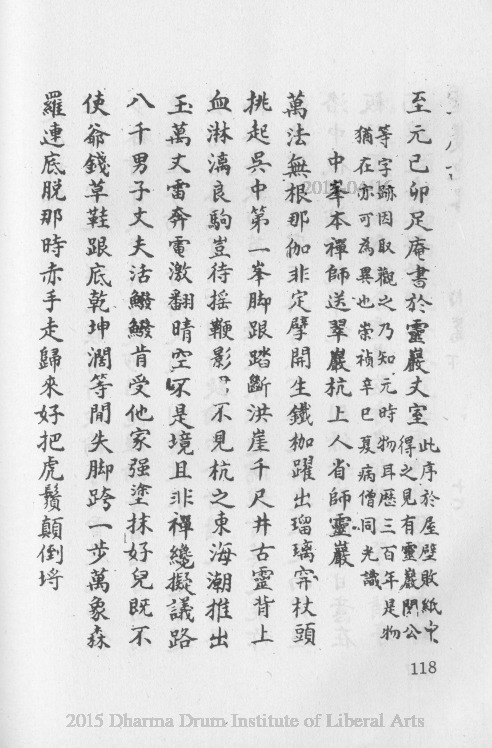 至元己卯足庵書於靈巖丈室
此序於屋壁敗紙中
得之見有靈巖開公
等字跡因取觀之乃知元時物耳歷三百年是物
猶在亦可為異也崇禎辛巳夏病僧同光識
中峯本禪師送翠巖杭上人省師靈巖
萬法無根那伽非定擘開生鐵枷躍出瑠璃穽杖頭
挑起吳中第一峯脚跟踏斷洪崖千尺井古靈背上
血淋漓良駒豈待揺鞭影不見杭之東海潮推出
玉萬丈雷奔電激翻晴空不是境且非禪纔擬議路
八千男子丈夫活鱍鱍肯受他家强塗抹好兒既不
使爺錢草鞋跟底乾坤濶等閒失脚跨一步萬象森
羅連底脫那時赤手走歸來好把虎鬚顛倒捋
118
2015 Dharma Drum Institute of Liberal Arts